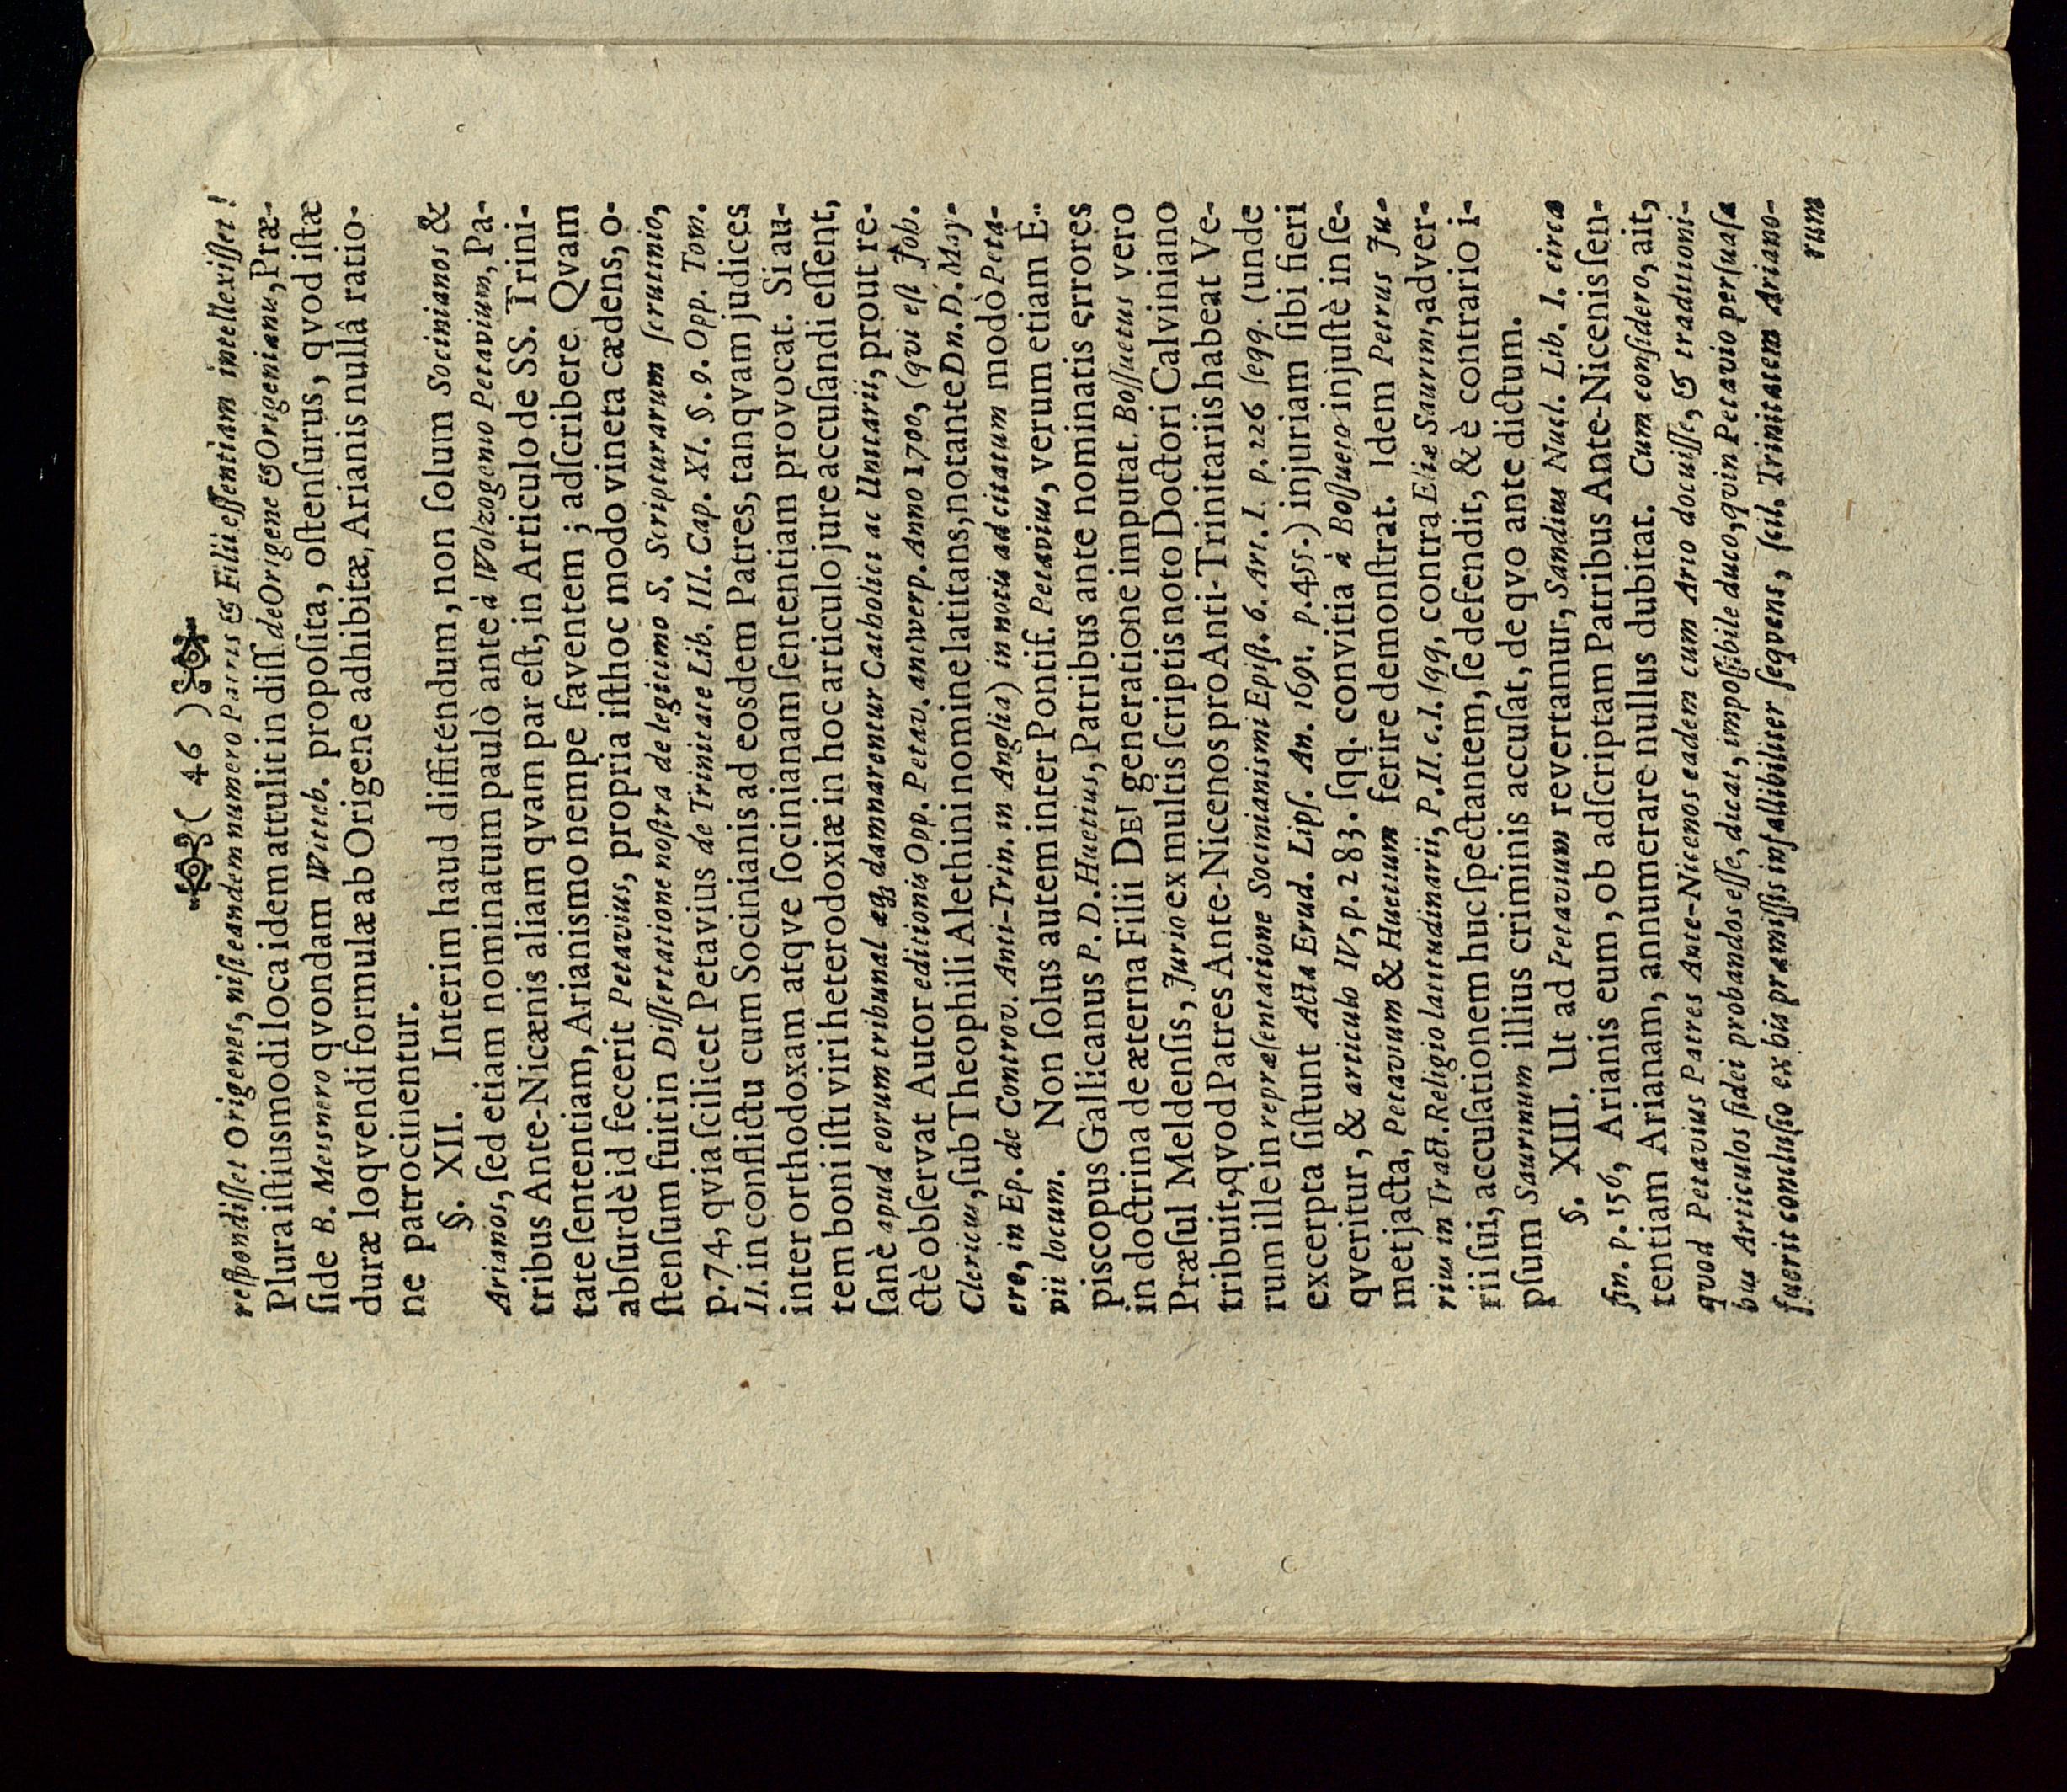 ( 46 )
reſpondiſſet Origenes, niſi eandem numero Patris & Filii eſſentiam intellexiſſet!
Plura iſtiusmodi loca idem attulit in diſſ. de Origene & Origenianis, Præ-
ſide B. Meisnero qvondam Witteb. propoſita, oſtenſurus, qvod iſtæ
duræ loqvendi formulæ ab Origene adhibitæ, Arianis nullâ ratio-
ne patrocinentur.
§. XII. Interim haud diffitendum, non ſolum Socinianos &
Arianos, ſed etiam nominatum paulò ante à Wolzogenio Petavium, Pa-
tribus Ante-Nicænis aliam qvam par eſt, in Articulo de SS. Trini-
tate ſententiam, Arianismo nempe faventem; adſcribere. Qvam
abſurdè id fecerit Petavius, propria iſthoc modo vineta cædens, o-
ſtenſum fuit in Diſſertatione noſtra de legitimo S. Scripturarum ſcrutinio,
p. 74, qvia ſcilicet Petavius de Trinitate Lib. III. Cap. XI. §. 9. Opp. Tom.
II. in conflictu cum Socinianis ad eosdem Patres, tanqvam judices
inter orthodoxam atqve ſocinianam ſententiam provocat. Si au-
tem boni iſti viri heterodoxiæ in hoc articulo jure accuſandi eſſent,
ſanè apud eorum tribunal æqꝫ damnarentur Catholici ac Unitarii, prout re-
ctè obſervat Autor editionis Opp. Petav. antwerp. Anno 1700, (qvi eſt Joh.
Clericus, ſub Theophili Alethini nomine latitans, notante Dn. D. May-
ero, in Ep. de Controv. Anti-Trin. in Anglia) in notis ad citatum modò Peta-
vii locum. Non ſolus autem inter Pontif. Petavius, verum etiam E-
piscopus Gallicanus P. D. Huetius, Patribus ante nominatis errores
in doctrina de æterna Filii DEI generatione imputat. Boſſuetus vero
Præſul Meldenſis, Jurio ex multis ſcriptis noto Doctori Calviniano
tribuit, qvod Patres Ante-Nicenos pro Anti-Trinitariis habeat Ve-
rum ille in repræſentatione Socinianismi Epiſt. 6. Art. I. p. 226 ſeqq. (unde
excerpta ſiſtunt Acta Erud. Lipſ. An. 1691. p. 455.) injuriam ſibi fieri
qveritur, & articulo IV, p. 283. ſqq. convitia à Boſſueto injuſtè in ſe-
met jacta, Petavium & Huetium ferire demonſtrat. Idem Petrus Ju-
rius in Tract. Religio latitudinarii, P. II. c. I. ſqq, contra Eliæ Saurini, adver-
rii ſui, accuſationem huc ſpectantem, ſe defendit, & è contrario i-
pſum Saurinum illius criminis accuſat, de qvo ante dictum.
§. XIII. Ut ad Petavium revertamur, Sandius Nucl. Lib. I. circa
fin. p. 156, Arianis eum, ob adſcriptam Patribus Ante-Nicenis ſen-
tentiam Arianam, annumerare nullus dubitat. Cum conſidero, ait,
qvod Petavius Patres Ante-Nicenos eadem cum Ario docuiſſe, & traditioni-
bus Articulos fidei probandos eſſe, dicat, impoſſibile duco, qvin Petavio perſuaſa
fuerit concluſio ex his præmiſſis infallibiliter ſeqvens, ſcil. Trinitatem Ariano-
rum